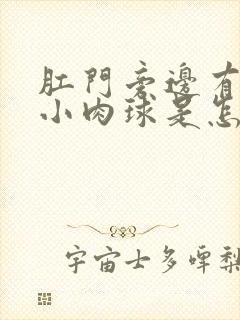 肛門旁邊有
小肉球是怎
宇宙士多啤梨